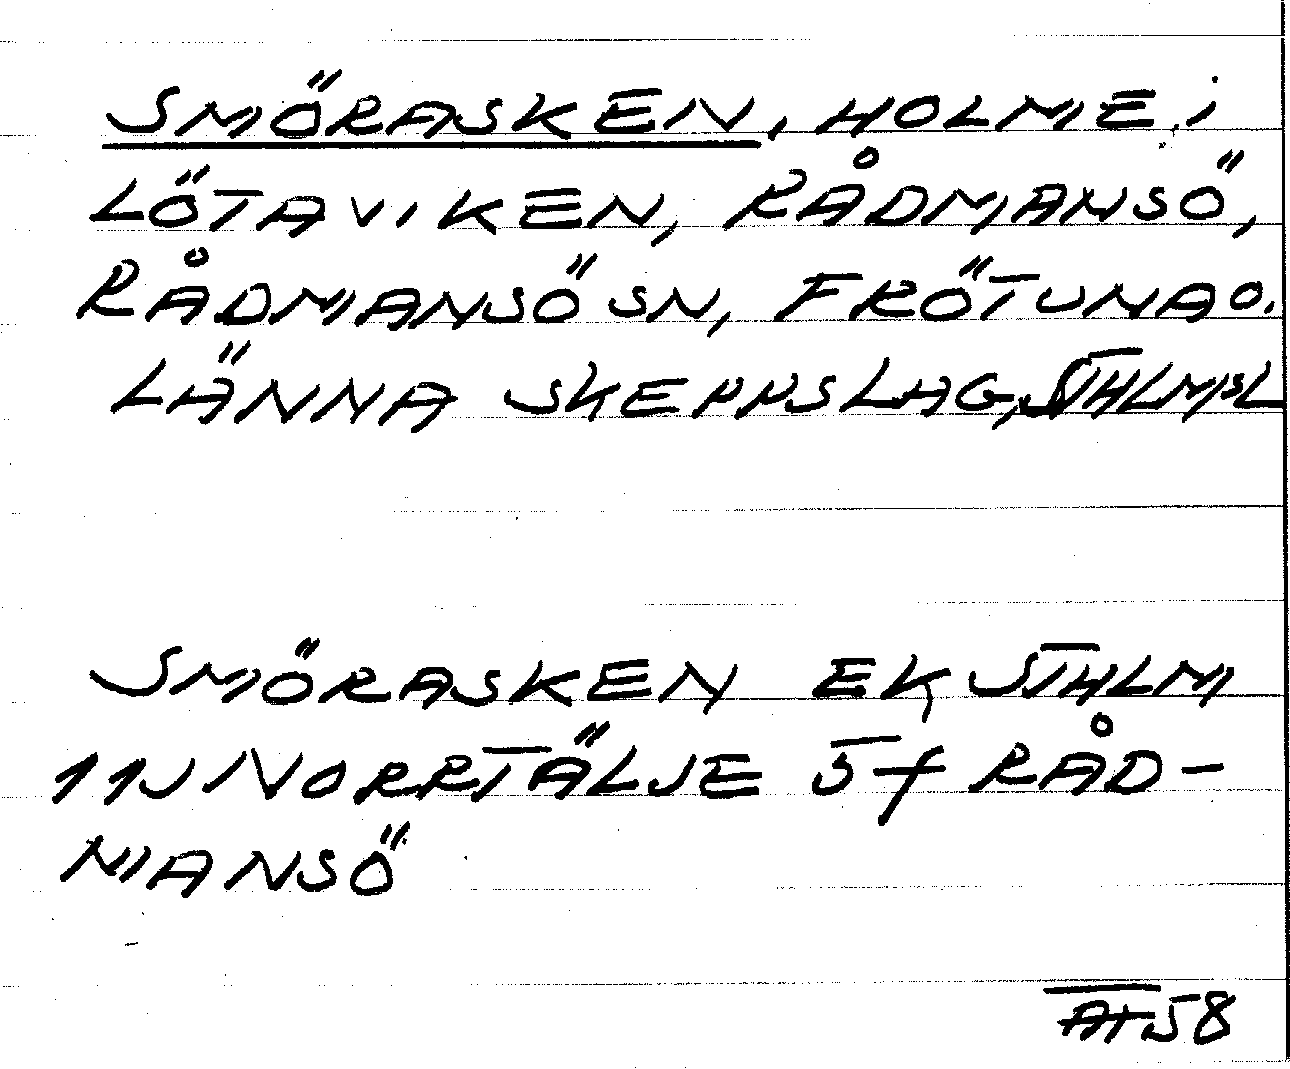 SMÖRASKEN, HOLME i
LÖTAVIKEN, RÅDMANSÖ,
RÅDMANSÖ SN, FRÖTUNA O.
LÄNNA SKEPPSLAG, STHLMSL
SMÖRASKEN EK STHLM
11J NORRTÄLJE 5f RÅD-
MANSÖ
58